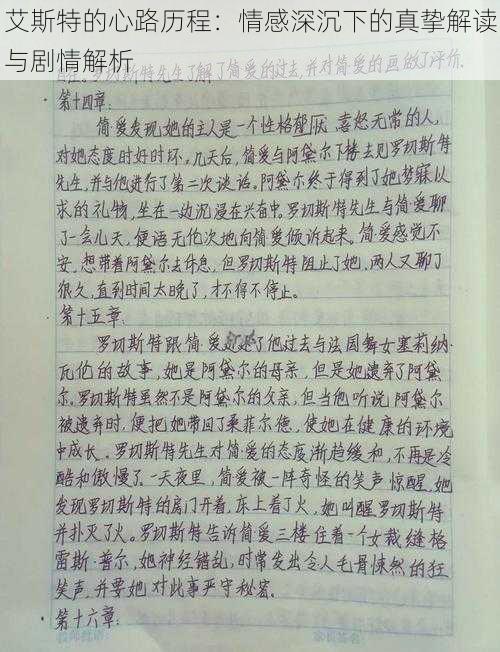 艾斯特的心路历程：情感深沉下的真挚解读
与剧情解析
在。罗切斯特先生了解了简爱的过去，并对简爱的画做了评价。
第十四章：
简爱发现她的主人是一个性格郁厌，喜怒无常的人，
对她态度时好时坏。几天后，简爱与阿黛尔下楼去见罗切斯特
先生，并与他进行了第二次谈话。阿黛尔终于得到了她梦寐以
求的礼物，坐在一边沉浸在兴奋中。罗切斯特先生与简爱聊
了一会儿天，便语无伦次地向简爱倾诉起来。简爱感觉不
安，想带着阿黛尔去休息，但罗切斯特阻止了她，两人又聊了
很久，直到时间太晚了，才不得不停止。
第十五章：
罗切斯特跟简·爱述了他过去与法国舞女塞莉纳·
瓦伦的故事，她是阿黛尔的母亲，但是她遗弃了阿黛
尔。罗切斯特虽然不是阿黛尔的父亲，但当他听说阿黛尔
被遗弃时，便把她带回了桑菲尔德，使她在健康的环境
中成长。罗切斯特先生对简·爱的态度渐趋缓和，不再是冷
酷和傲慢了。一天夜里，简爱被一阵奇怪的笑声惊醒，她
发现罗切斯特的房门开着，床上着了火，她叫醒罗切斯特
并扑灭了火。罗切斯特告诉简爱三楼住着一个女裁缝格
雷斯·普尔，她神经错乱，时常发出令人毛骨悚然的狂
笑声，并要她对此事严守秘密。
第十六章：